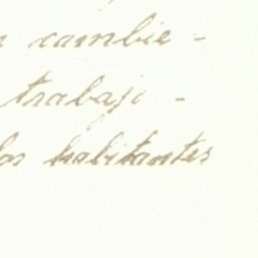 cambie -
trabajo -
los habitantes